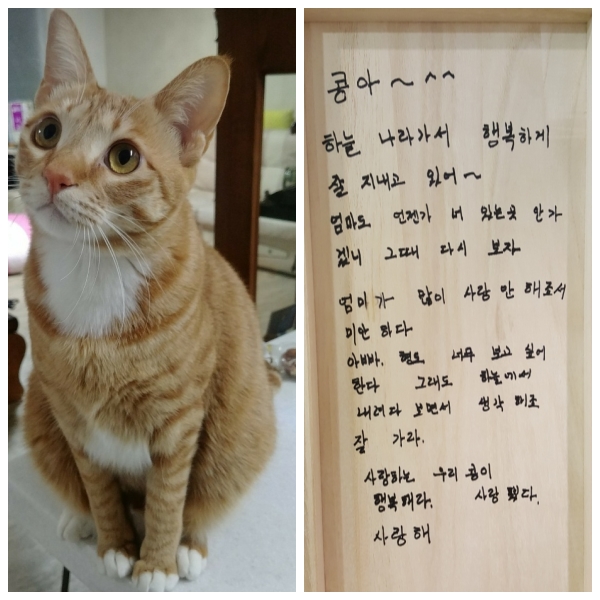 콩아~ ^^
하늘 나라가서 행복하게
잘 지내고 있어~
엄마도 언젠가 너 있는곳 안가
겠니 그때 다시 보자
엄마가 많이 사랑 안 해조서
미안 하다
아빠, 형도 너무 보고 싶어
한다 그래도 하늘에서
내려다 보면서 생각 해조
잘 가라.
사랑하는 우리 콩이
행복해라. 사랑 했다.
사랑해